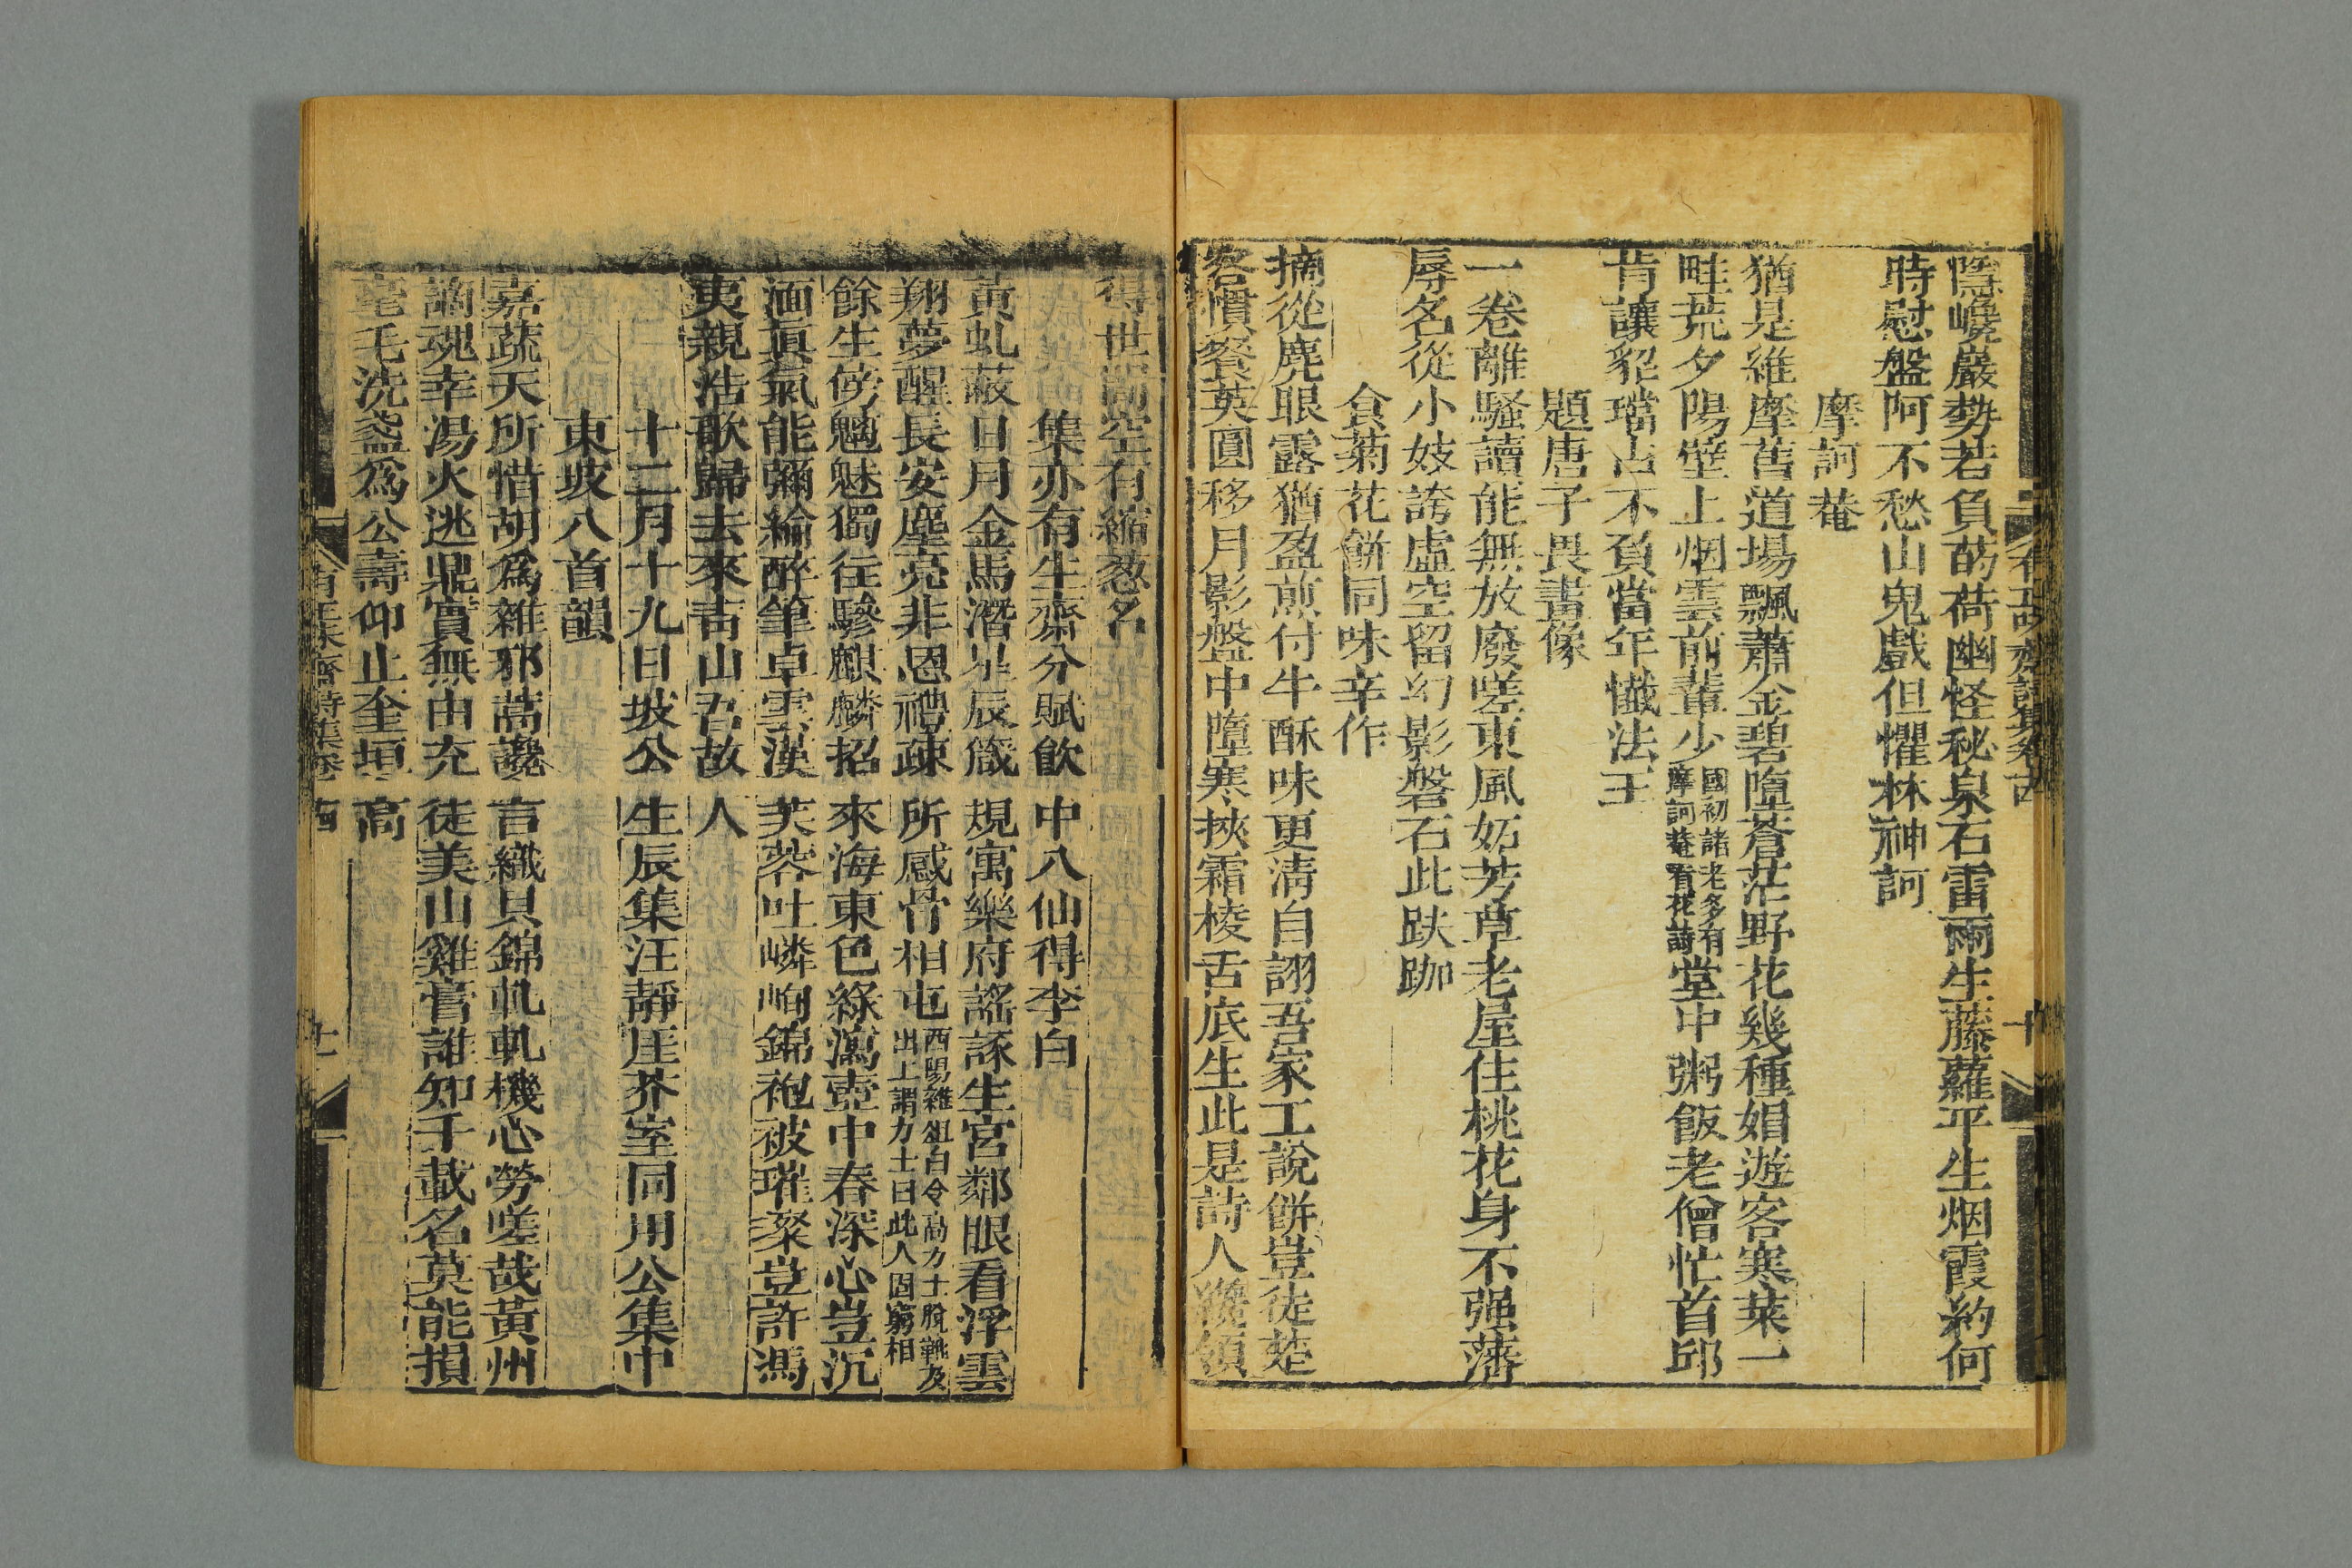 隱嶢巖勢若負的荷幽怪秘泉石雷雨生藤蘿平生烟霞約何
時慰盤阿不愁山鬼戲但懼林神訶
摩訶菴
猶是維摩舊道場飄蕭金碧墮蒼茫野花幾種娼遊客寒菜一
畦荒夕陽壁上烟雲前輩少國初諸老多有摩訶菴看花詩堂中粥飯老僧忙首邱
肯讓貂璫占不負當年懺法王
題唐子畏畫像
一卷離騷讀能無放廢嗟東風妬芳草老屋住桃花身不强藩
辱名從小妓誇虛空留幻影磐石此趺跏
食菊花餅同味辛作
摘從麂眼露猶盈煎付牛酥味更清自詡吾家工說餅豈徒楚
客慣餐英圓移月影盤中墮寒挾霜棱舌底生此是詩人饞領
得世間空有縮葱名
集亦有生齋分賦飲中八仙得李白
黃虬蔽日月金馬潛星辰箴規寓樂府謠諑生宮鄰眼看浮雲
翔夢醒長安塵亮非恩禮疎所感骨相屯酉陽雜俎白令高力士脫靴及出上謂力士曰此人固窮相
餘生傍魑魅獨往驂麒麟招來海東色綠瀉壺中春深心豈沉
湎眞氣能彌綸醉筆卓雲漢芙蓉吐嶙峋錦袍被璀粲豈許馮
夷親浩歌歸去來青山吾故人
十二月十九日坡公生辰集汪靜厓芥室同用公集中
東坡八首韻
嘉蔬天所惜胡爲雜邪蒿讒言織貝錦軋軋機心勞嗟哉黃州
謫魂幸湯火逃鼎實無由充徒美山雞膏誰知千載名莫能損
毫毛洗盞爲公壽仰止奎垣高